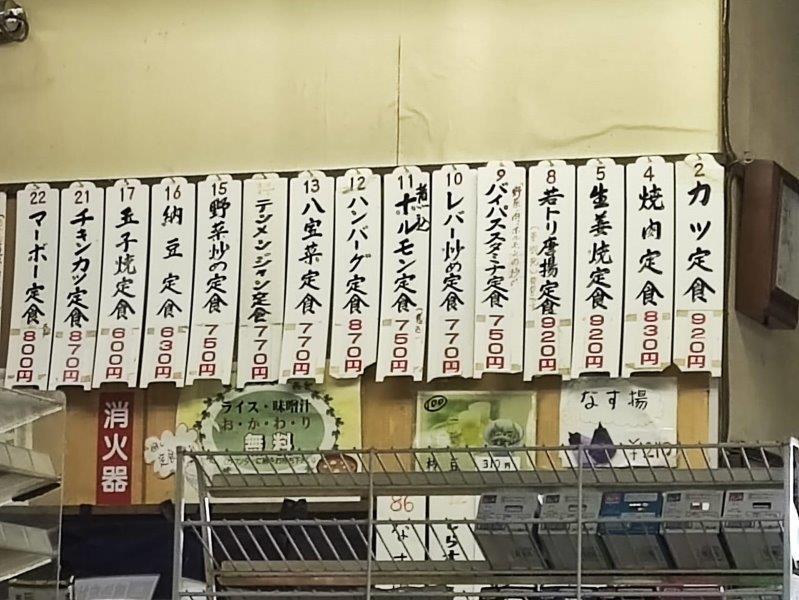 2 カツ定食 920円
4 焼肉定食 830円
5 生姜焼定食 920円
8 若トリ唐揚定食 920円
9 バイパススタミナ定食 750円
10 レバー炒め定食 770円
11 煮込 ホルモン定食 750円
12 ハンバーグ定食 870円
13 八宝菜定食 770円
テンメンジャン定食 770円
15 野菜炒め定食 750円
16 納豆定食 630円
17 玉子焼定食 600円
21 チキンカツ定食 870円
22 マーボー定食 800円
消火器
ライス・味噌汁
お・か・わ・り
無料
100
枝豆 310円
なす揚
86